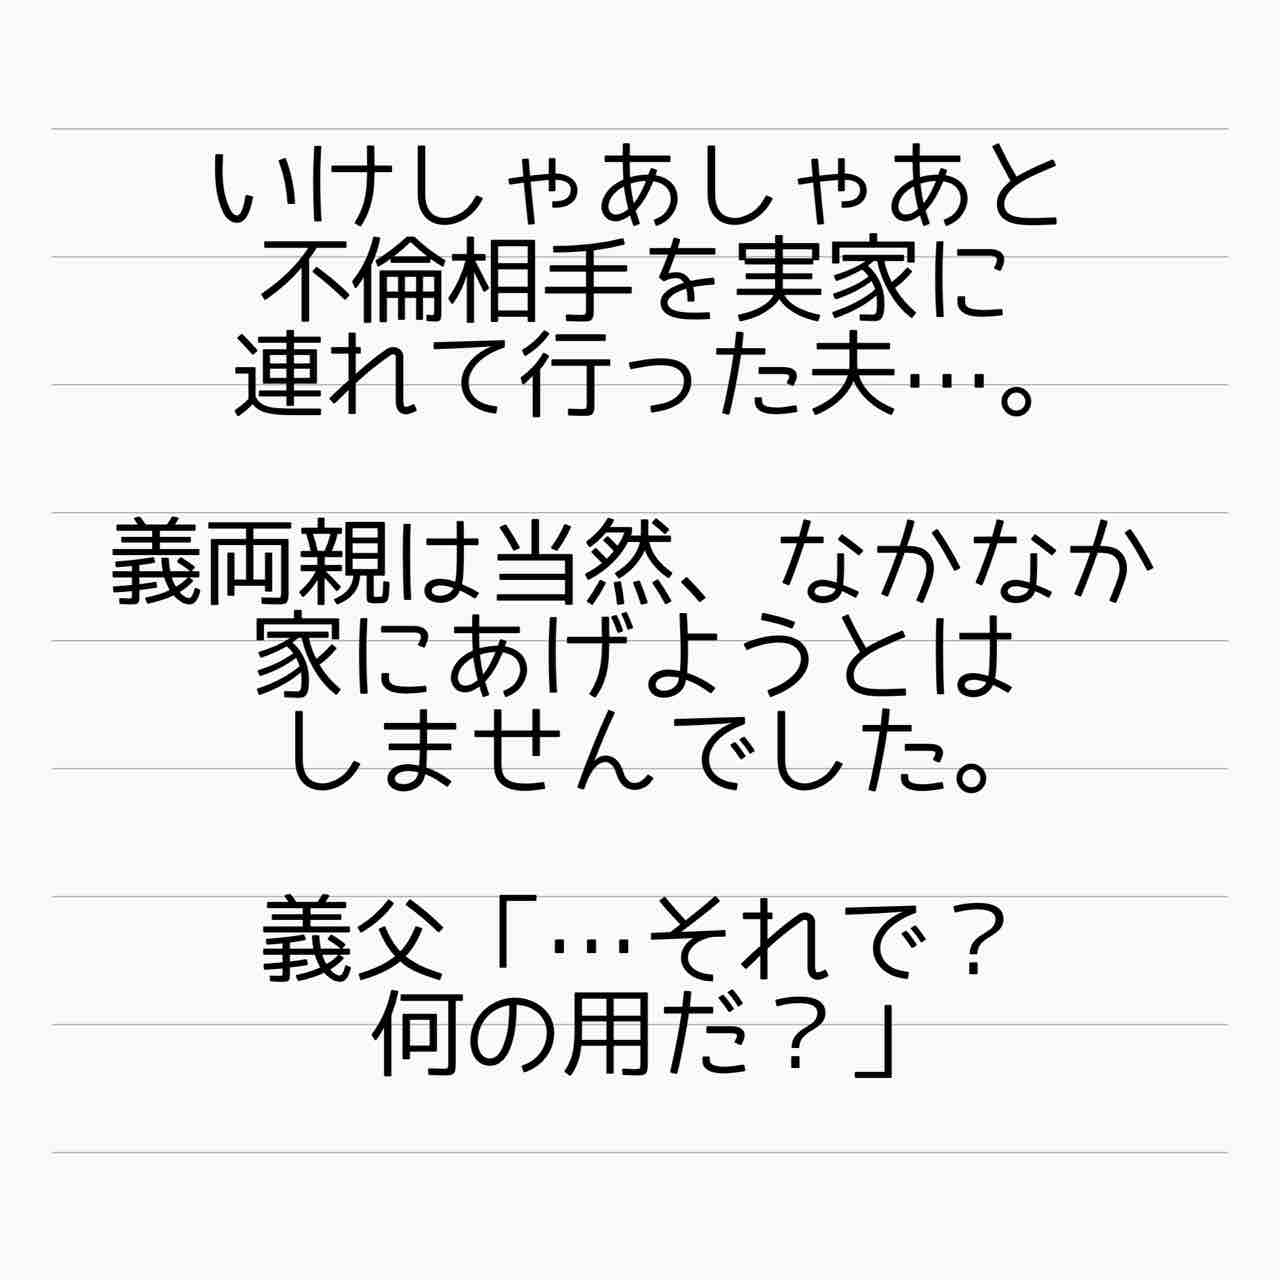 いけしゃあしゃあと
不倫相手を実家に
連れて行った夫…。
義両親は当然、なかなか
家にあげようとは
しませんでした。
義父「…それで？
何の用だ？」